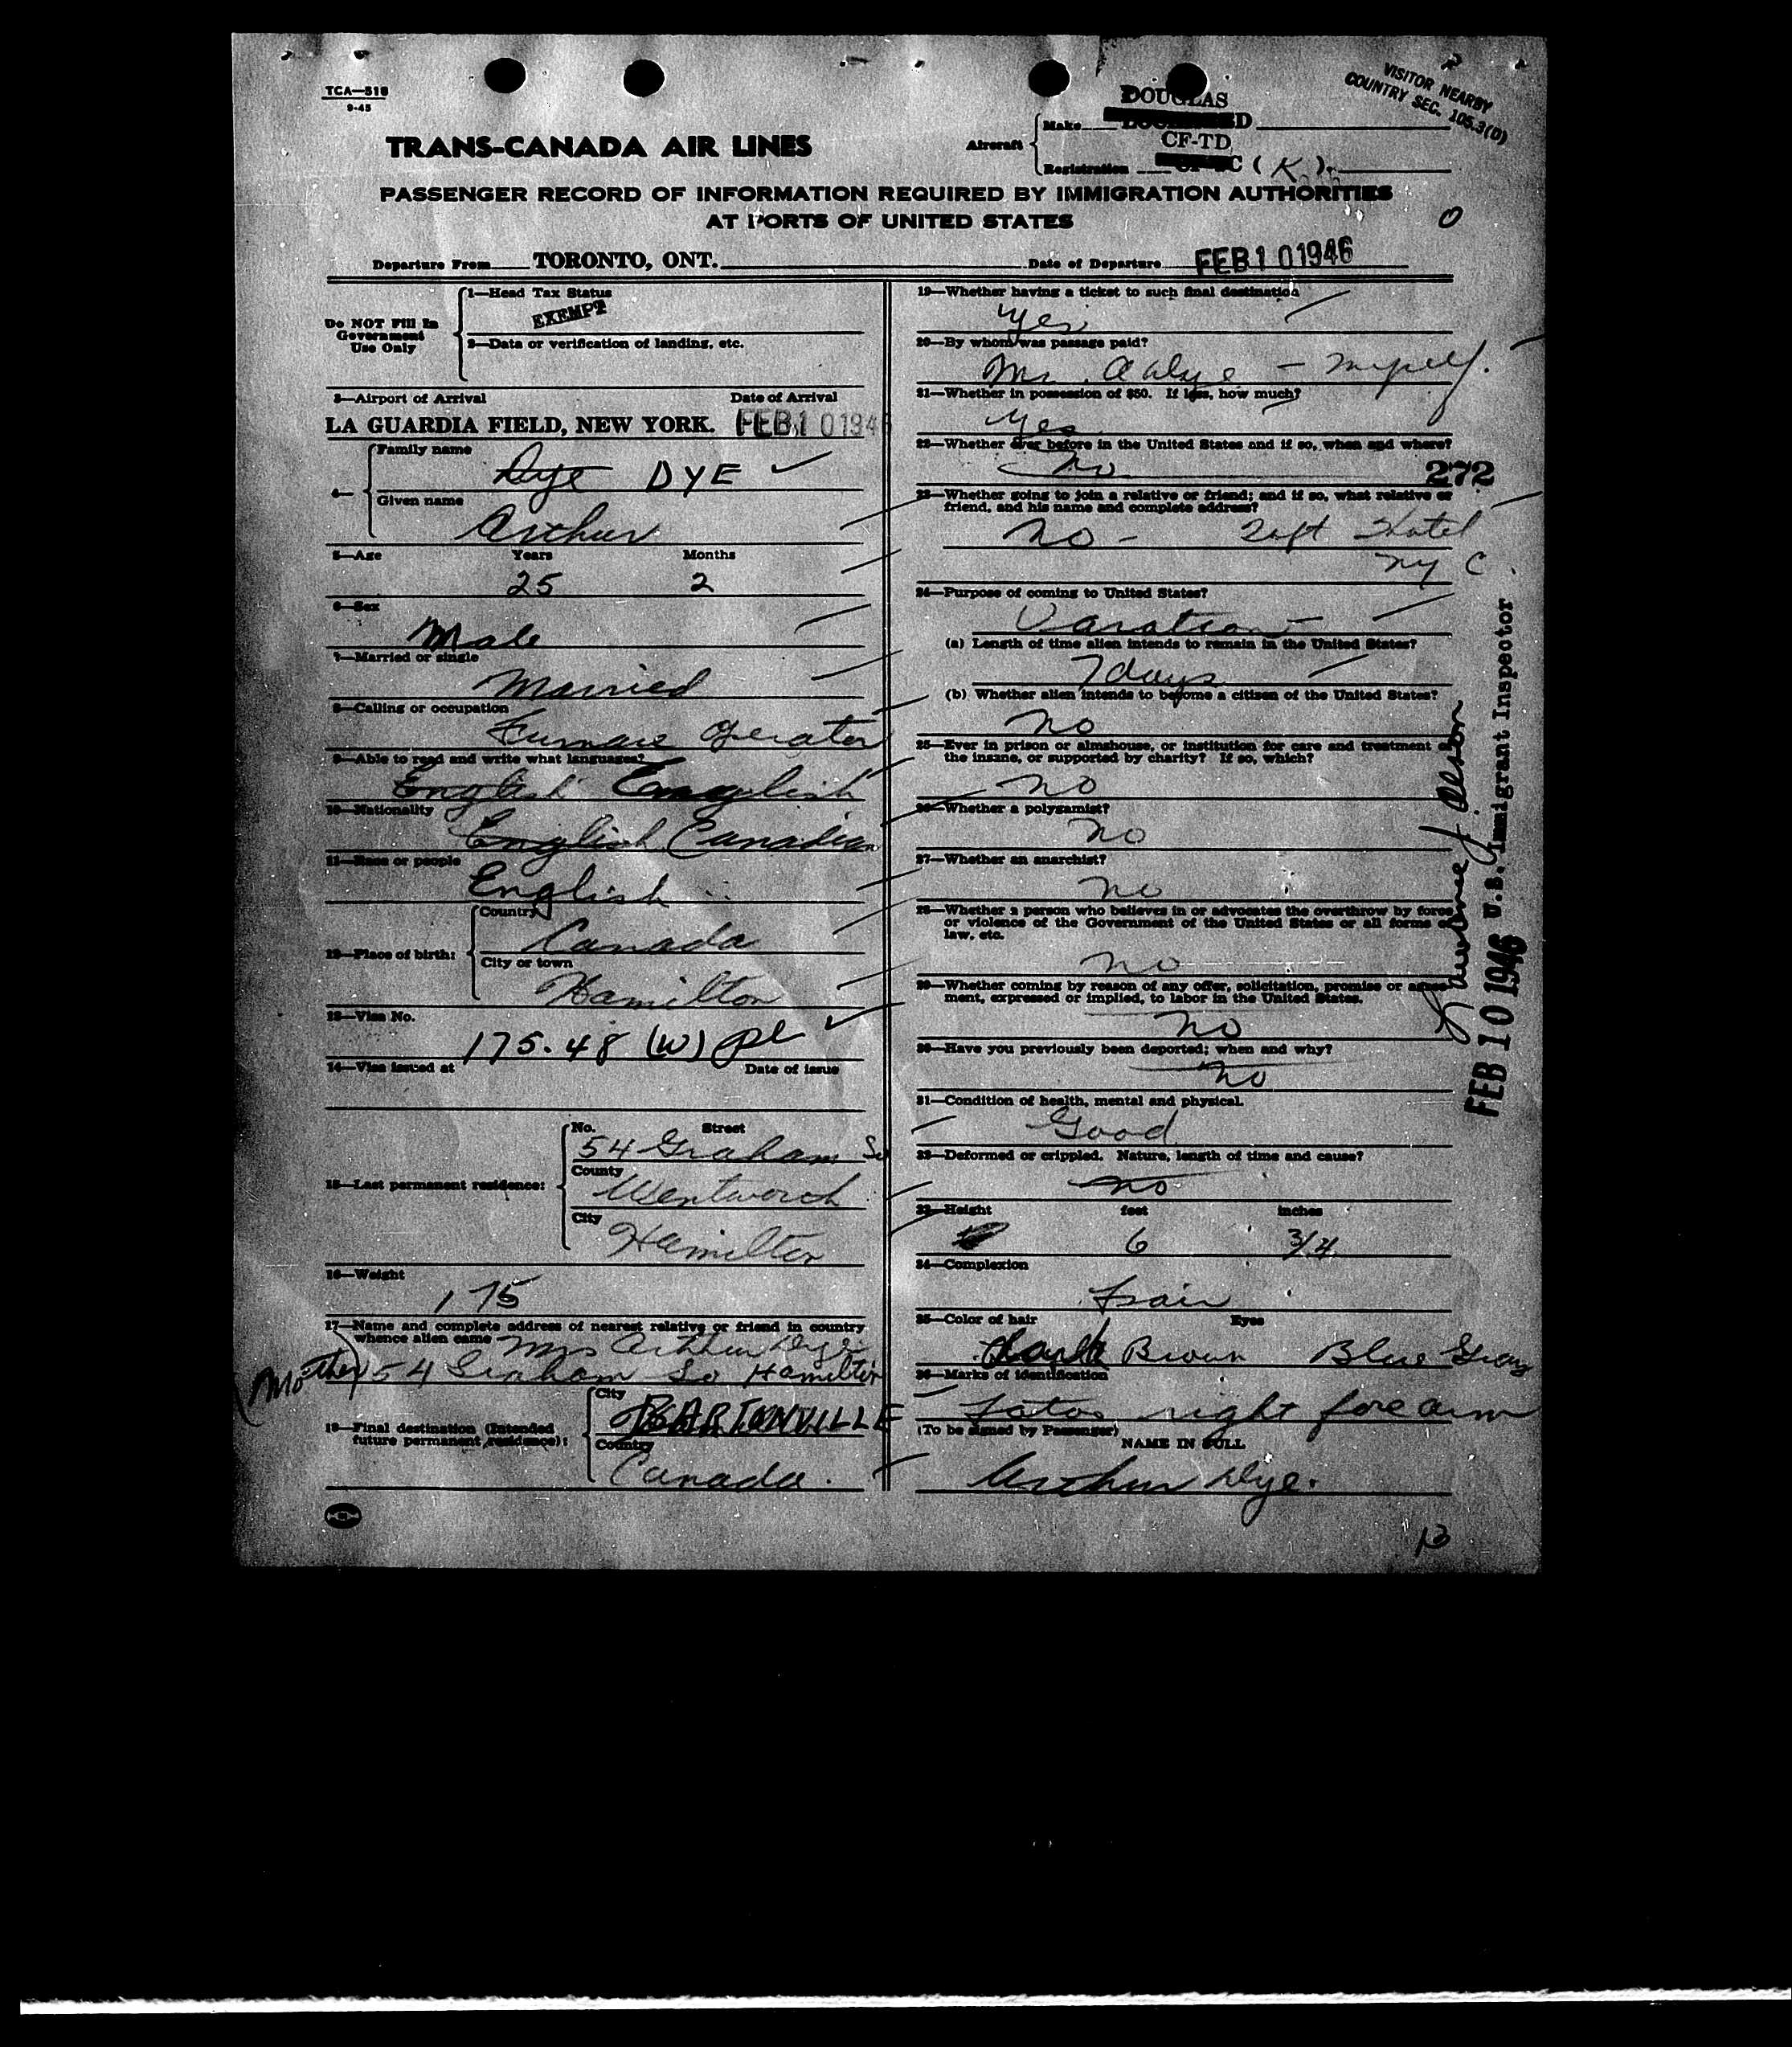 TCA—518
9-45
TRANS-CANADA AIR LINES
Aircraft
DOUGLAS
Make
CF-TD
Registration C (K)
VISITOR NEARBY
COUNTRY SEC. 105.3(D)
PASSENGER RECORD OF INFORMATION REQUIRED BY IMMIGRATION AUTHORITIES
AT PORTS OF UNITED STATES
O
Departure From TORONTO, ONT. Date of Departure FEB 10 1946
Do NOT Fill In
Government
Use Only
1—Head Tax Status
EXEMPT
2—Data or verification of landing, etc.
3—Airport of Arrival Date of Arrival
LA GUARDIA FIELD, NEW YORK. FEB 10 1946
4—
Family name
Dye DYE
Given name
Arthur
5—Age Years Months
25 2
6—Sex
Male
7—Married or single
Married
8—Calling or occupation
Furnace operator
9—Able to read and write what languages?
English English
10—Nationality
English Canadian
11—Race or people
English
12—Place of birth:
Country
Canada
City or town
Hamilton
13—Visa No.
175.48 (W) pl
14—Visa issued at Date of issue
15—Last permanent residence:
No. Street
54 Graham So
County
Wentworth
City
Hamilton
16—Weight
175
17—Name and complete address of nearest relative or friend in country
whence alien came Mrs Arthur Dye
(Mother) 54 Graham So Hamilton
18—Final destination (Intended
future permanent residence):
City
BARTONVILLE
Country
Canada.
19—Whether having a ticket to such final destination
Yes
20—By whom was passage paid?
Mr. A Dye — myself.
21—Whether in possession of $50. If less, how much?
Yes
22—Whether ever before in the United States and if so, when and where?
No
272
23—Whether going to join a relative or friend; and if so, what relative or
friend, and his name and complete address?
No - Taft Hotel
NY C.
24—Purpose of coming to United States?
Vacation
(a) Length of time alien intends to remain in the United States?
7 days
(b) Whether alien intends to become a citizen of the United States?
No
25—Ever in prison or almshouse, or institution for care and treatment of
the insane, or supported by charity? If so, which?
No
26—Whether a polygamist?
No
27—Whether an anarchist?
No
28—Whether a person who believes in or advocates the overthrow by force
or violence of the Government of the United States or all forms of
law, etc.
No
29—Whether coming by reason of any offer, solicitation, promise or agree-
ment, expressed or implied, to labor in the United States.
No
30—Have you previously been deported; when and why?
No
31—Condition of health, mental and physical.
Good
32—Deformed or crippled. Nature, length of time and cause?
No
33—Height feet inches
6 3/4
34—Complexion
Fair
35—Color of hair Eyes
Dark Brown Blue Gray
36—Marks of identification
Tatoo right forearm
(To be signed by Passenger)
NAME IN FULL
Arthur Dye.
13
FEB 10 1946 U.S. Immigrant Inspector